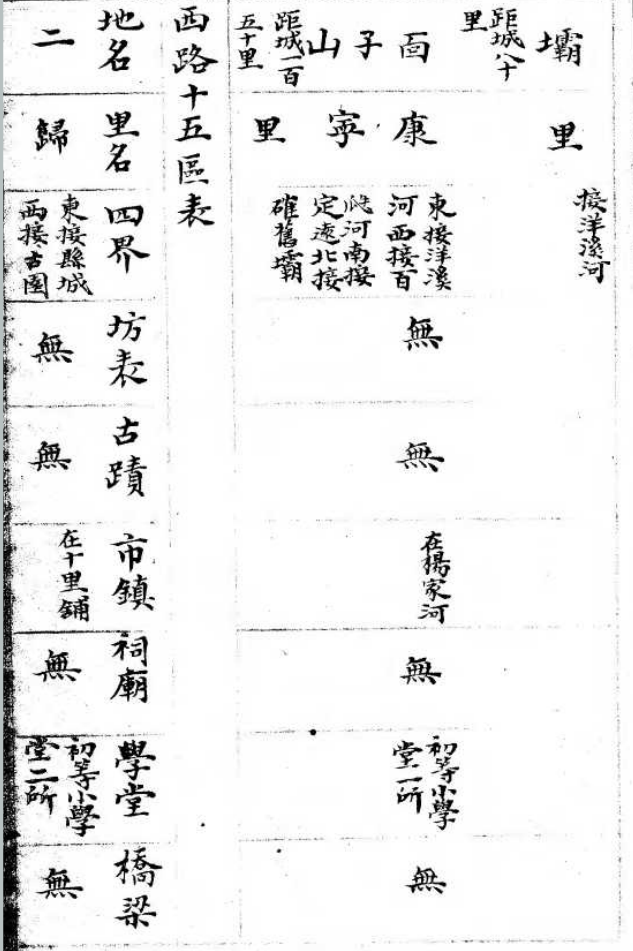 壩
距城八十
里
里
接洋溪河
面子山
距城一百
五十里
康寧里
東接洋溪
河西接百
河南接
定遠北接
碓舊壩
無
無
在楊家河
無
初等小學
堂一所
無
西路十五區表
地名
里名
四界
坊表
古蹟
市鎮
祠廟
學堂
橋梁
二
歸
東接縣城
西接古園
無
無
在十里鋪
無
初等小學
堂二所
無